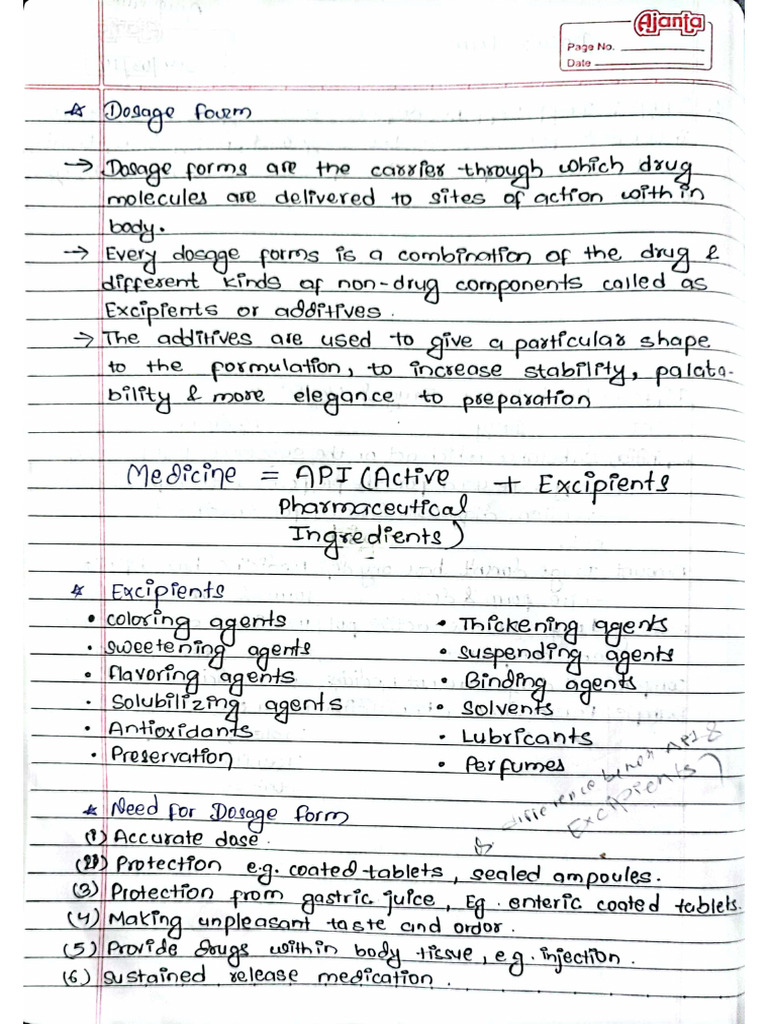 Ajanta
Page No.
Date
☆ Dosage form
→ Dosage forms are the carrier through which drug
molecules are delivered to sites of action with in
body.
→ Every dosage forms is a combination of the drug &
different kinds of non-drug components called as
Excipients or additives.
→ The additives are used to give a particular shape
to the formulation, to increase stability, palata-
bility & more elegance to preparation
Medicine = API (Active + Excipients
Pharmaceutical
Ingredients)
☆ Excipients
• coloring agents
• sweetening agents
• flavoring agents
• Solubilizing agents
• Antioxidants
• Preservation
• Thickening agents
• suspending agents
• Binding agents
• Solvents
• Lubricants
• Perfumes
difference API &
Excipients)
☆ Need for Dosage form
(1) Accurate dose.
(2) Protection e.g. coated tablets, sealed ampoules.
(3) Protection from gastric juice, Eg. enteric coated tablets.
(4) Making unpleasant taste and ordor.
(5) Provide drugs within body tissue, e.g. injection.
(6) Sustained release medication.